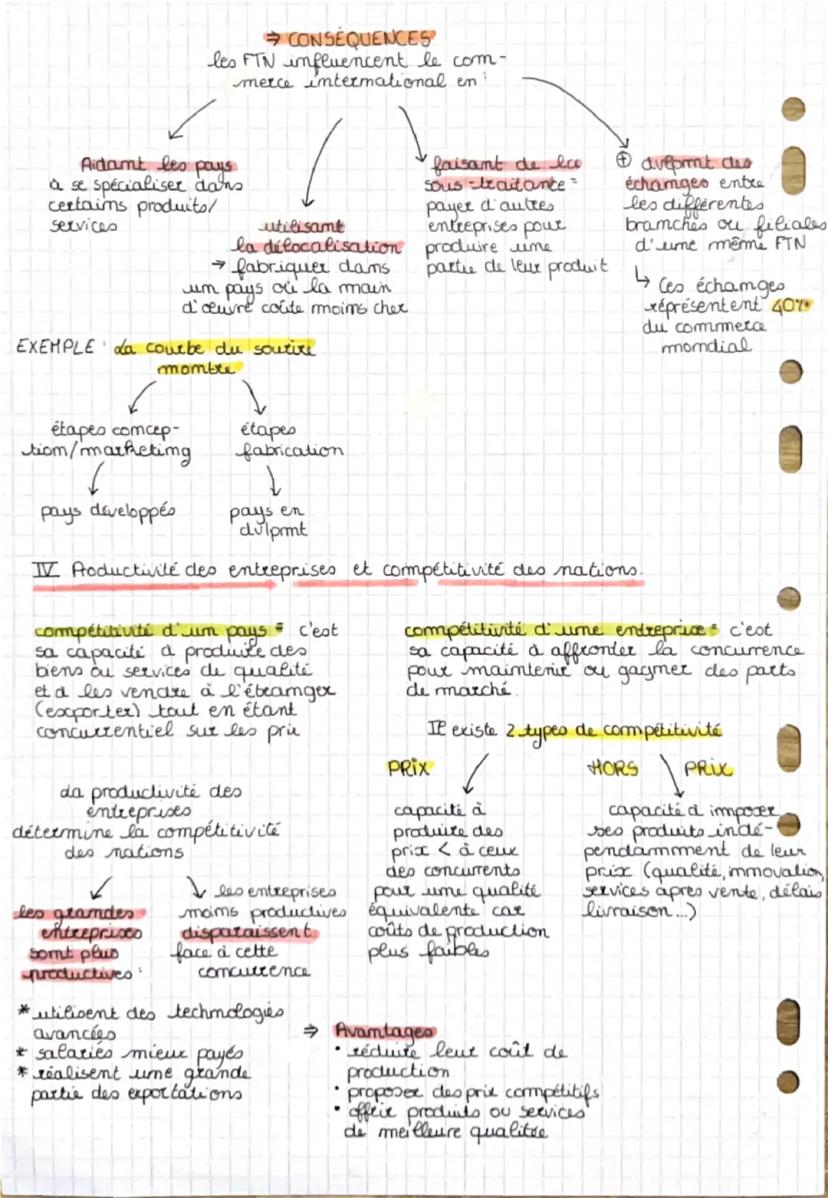 ⇒ CONSÉQUENCES
les FTN influencent le com-
merce international en :
Aidant les pays
à se spécialiser dans
certains produits/
services
utilisant
la délocalisation
→ fabriquer dans
un pays où la main
d'œuvre coûte moins cher
faisant de la
sous-traitante =
payer d'autres
entreprises pour
produire une
partie de leur produit
⊕ dvlpmnt des
échanges entre
les différentes
branches ou filiales
d'une même FTN
↳ Ces échanges
réprésentent 40%
du commerce
mondial
EXEMPLE : La courbe du sourire
montre
étapes concep-
tion/marketing
pays développés
étapes
fabrication
pays en
dvlpmt
IV Productivité des entreprises et compétitivité des nations.
compétitivité d'un pays = c'est
sa capacité à produire des
biens ou services de qualité
et à les vendre à l'étranger
(exporter) tout en étant
concurrentiel sur les prix
La productivité des
entreprises
détermine la compétitivité
des nations
les grandes
entreprises
sont plus
productives :
les entreprises
moins productives
disparaissent
face à cette
concurrence
* utilisent des technologies
avancées
* salariés mieux payés
* réalisent une grande
partie des exportations
compétitivité d'une entreprise = c'est
sa capacité à affronter la concurrence
pour maintenir ou gagner des parts
de marché.
Il existe 2 types de compétitivité
PRIX
capacité à
produire des
prix < à ceux
des concurrents
pour une qualité
équivalente car
coûts de production
plus faibles
HORS PRIX
capacité à imposer
ses produits indé-
pendamment de leur
prix (qualité, innovation,
services après vente, délais
livraison...)
⇒ Avantages
• réduire leur coût de
production
• proposer des prix compétitifs
• offrir produits ou services
de meilleure qualitée